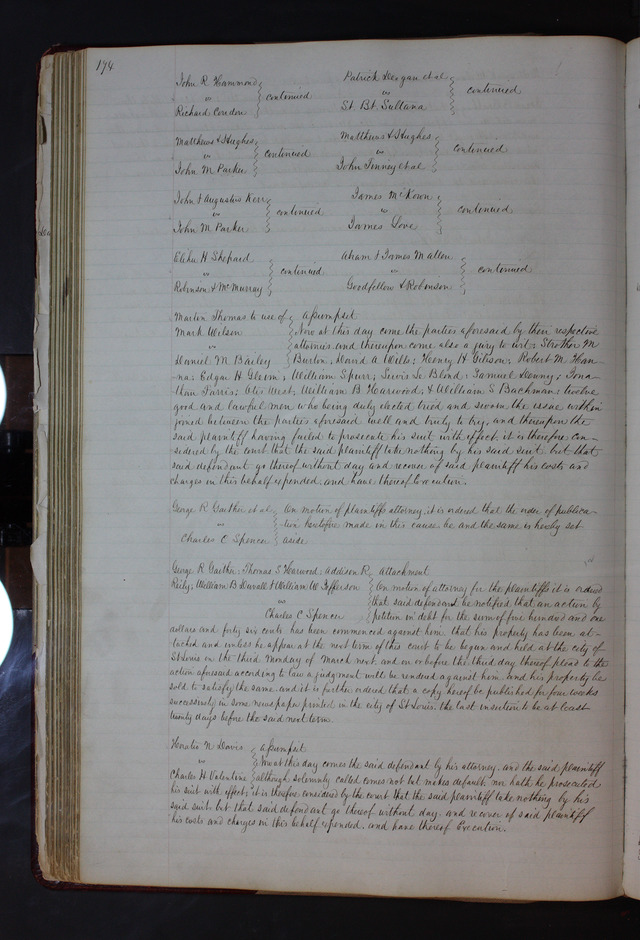 194
John R Hammond
vs
Richard Condon
continued
Patrick et al
vs
St Bt. Sultana
continued
Matthews & Hughes
vs
John M Parker
continued
Matthews & Hughes
vs
John et al
continued
John & Augustus Kerr
vs
John M Parker
continued
James McKown
vs
James Love
continued
Elihu H Shepard
vs
Robinson & McMurray
continued
& James Matten
vs
Goodfellow & Robinson
continued
Martin Thomas to use of
Mark Wilson
vs
Daniel M Bailey
Assumpsit
Now at this day come the parties aforesaid by their respective
attornies. and thereupon come also a jury to wit; Strother M
Burton; David A Wills; Henry H Gibson; Robert M Han-
na; Edgar H ; William Spurr; Lewis Le Blond; Samuel ; Jona-
than Farris; Otis West; William B Harwood; & William S Bachman; twelve
good and lawful men who being duly elected tried and sworn the issue within
joined between the parties aforesaid well and truly to try. and thereupon the
said plaintiff having failed to prosecute his suit with effect. it is therefore con-
sidered by the court that the said plaintiff take nothing by his said suit. but that
said defendant go thereof without day and recover of said plaintiff his costs and
charges in this behalf expended, and have thereof Execution.
George R Gaither et al
vs
Charles C Spencer
On motion of plaintiffs attorney. it is ordered that the order of publica-
tion heretofore made in this cause be and the same is hereby set
aside
George R Gaither; Thomas S Harwood; Addison R
Reily; William B Duvall & William W Jefferson
vs
Charles C Spencer
Attachment
On motion of attorney for the plaintiffs it is ordered
that said defendant be notified that an action by
petition in debt for the sum of five hundred and one
dollars and forty six cents has been commenced against him. that his property has been at-
tached and unless he appear at the next term of this court to be begun and held at the city of
St Louis on the third Monday of March next. and on or before the third day thereof plead to the
action aforesaid according to law a judgment will be rendered against him. and his property be
sold to satisfy the same. and it is further ordered that a copy hereof be published for four weeks
successively in some newspaper printed in the city of St Louis. the last insertion to be at least
twenty days before the said next term.
Horatio N Davis
vs
Charles H Valentine
Assumpsit
Now at this day comes the said defendant by his attorney. and the said plaintiff
although solemnly called comes not but makes default, nor hath he prosecuted
his suit with effect; it is therefore considered by the court that the said plaintiff take nothing by his
said suit. but that said defendant go thereof without day. and recover of said plaintiff
his costs and charges in this behalf expended. and have thereof Execution.